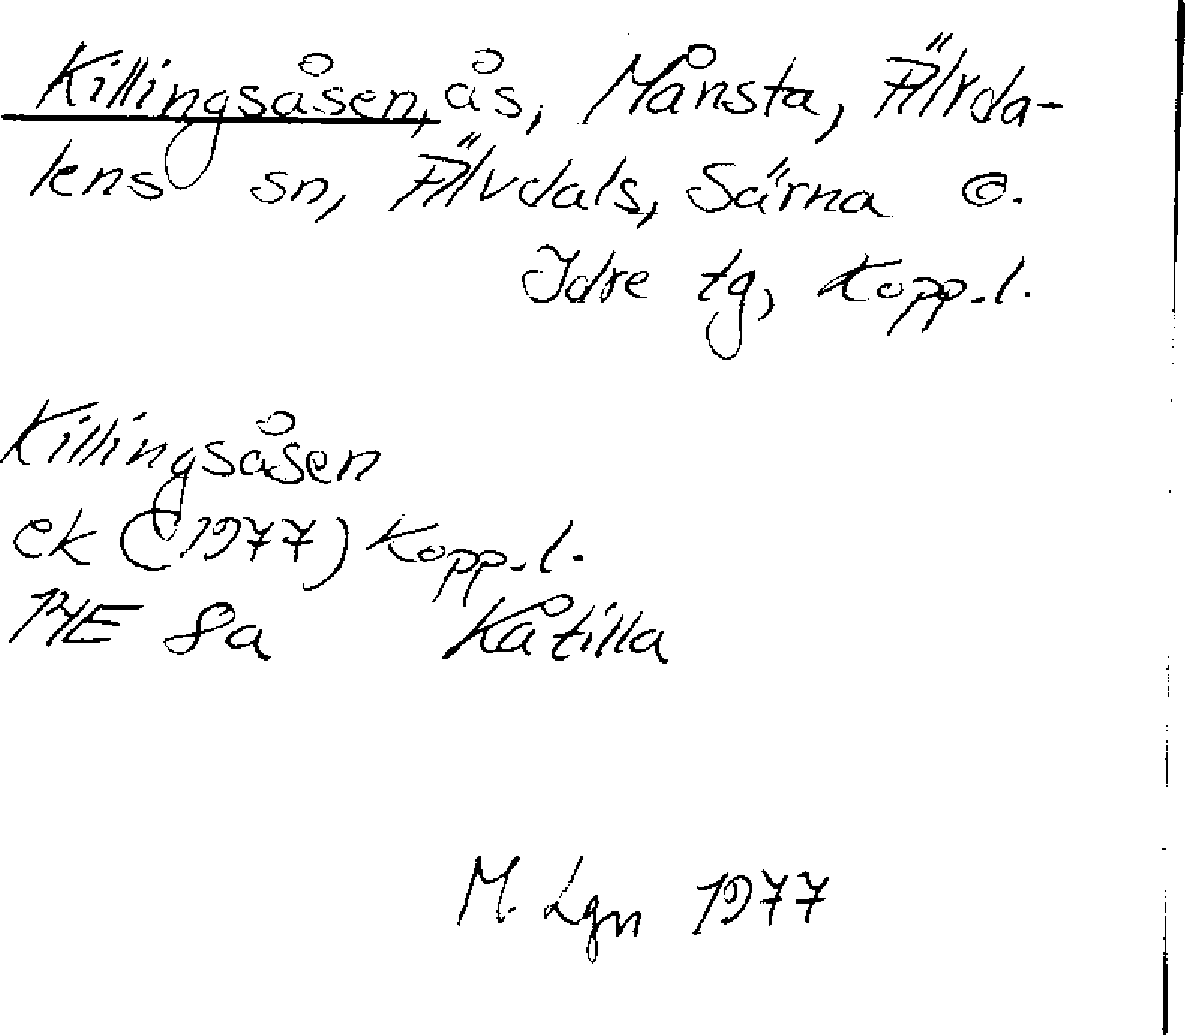 Killingsåsen, ås, Månsta, Älvda-
lens sn, Älvdals, Särna o.
Idre tg, Kopp. l.
Killingsåsen
ek (1977) Kopp. l.
14E 8a Kåtilla
M. Lgn 1977